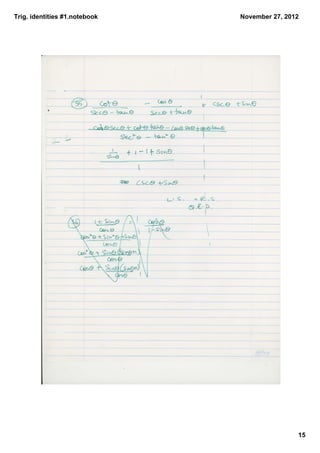 Trig. identities #1.notebook November 27, 2012
35 cotθ / (secθ - tanθ) - cosθ / (secθ + tanθ) = cscθ + sinθ
cotθ secθ + cotθ tanθ - cosθ secθ + cosθ tanθ
sec²θ - tan²θ
1/sinθ + 1 - 1 + sinθ
1
cscθ + sinθ
L.S. = R.S.
Q.E.D.
36 (1 + sinθ) / cosθ = cosθ / (1 - sinθ)
cos²θ + sin²θ + sinθ
cosθ
cos²θ + sinθ
cosθ
cosθ + sinθ
cosθ
15